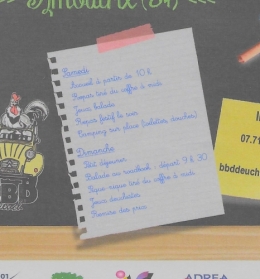 Samedi
Accueil à partir de 10 h
Repas tiré du coffre à midi
Jeux balade
Repas festif le soir
Camping sur place (toilettes douches)
Dimanche
Petit déjeuner
Balade au roadbook : départ 9 h 30
Pique nique tiré du coffre à midi
Jeux
Remise des prix
07.71
bbddeuch
ADREA